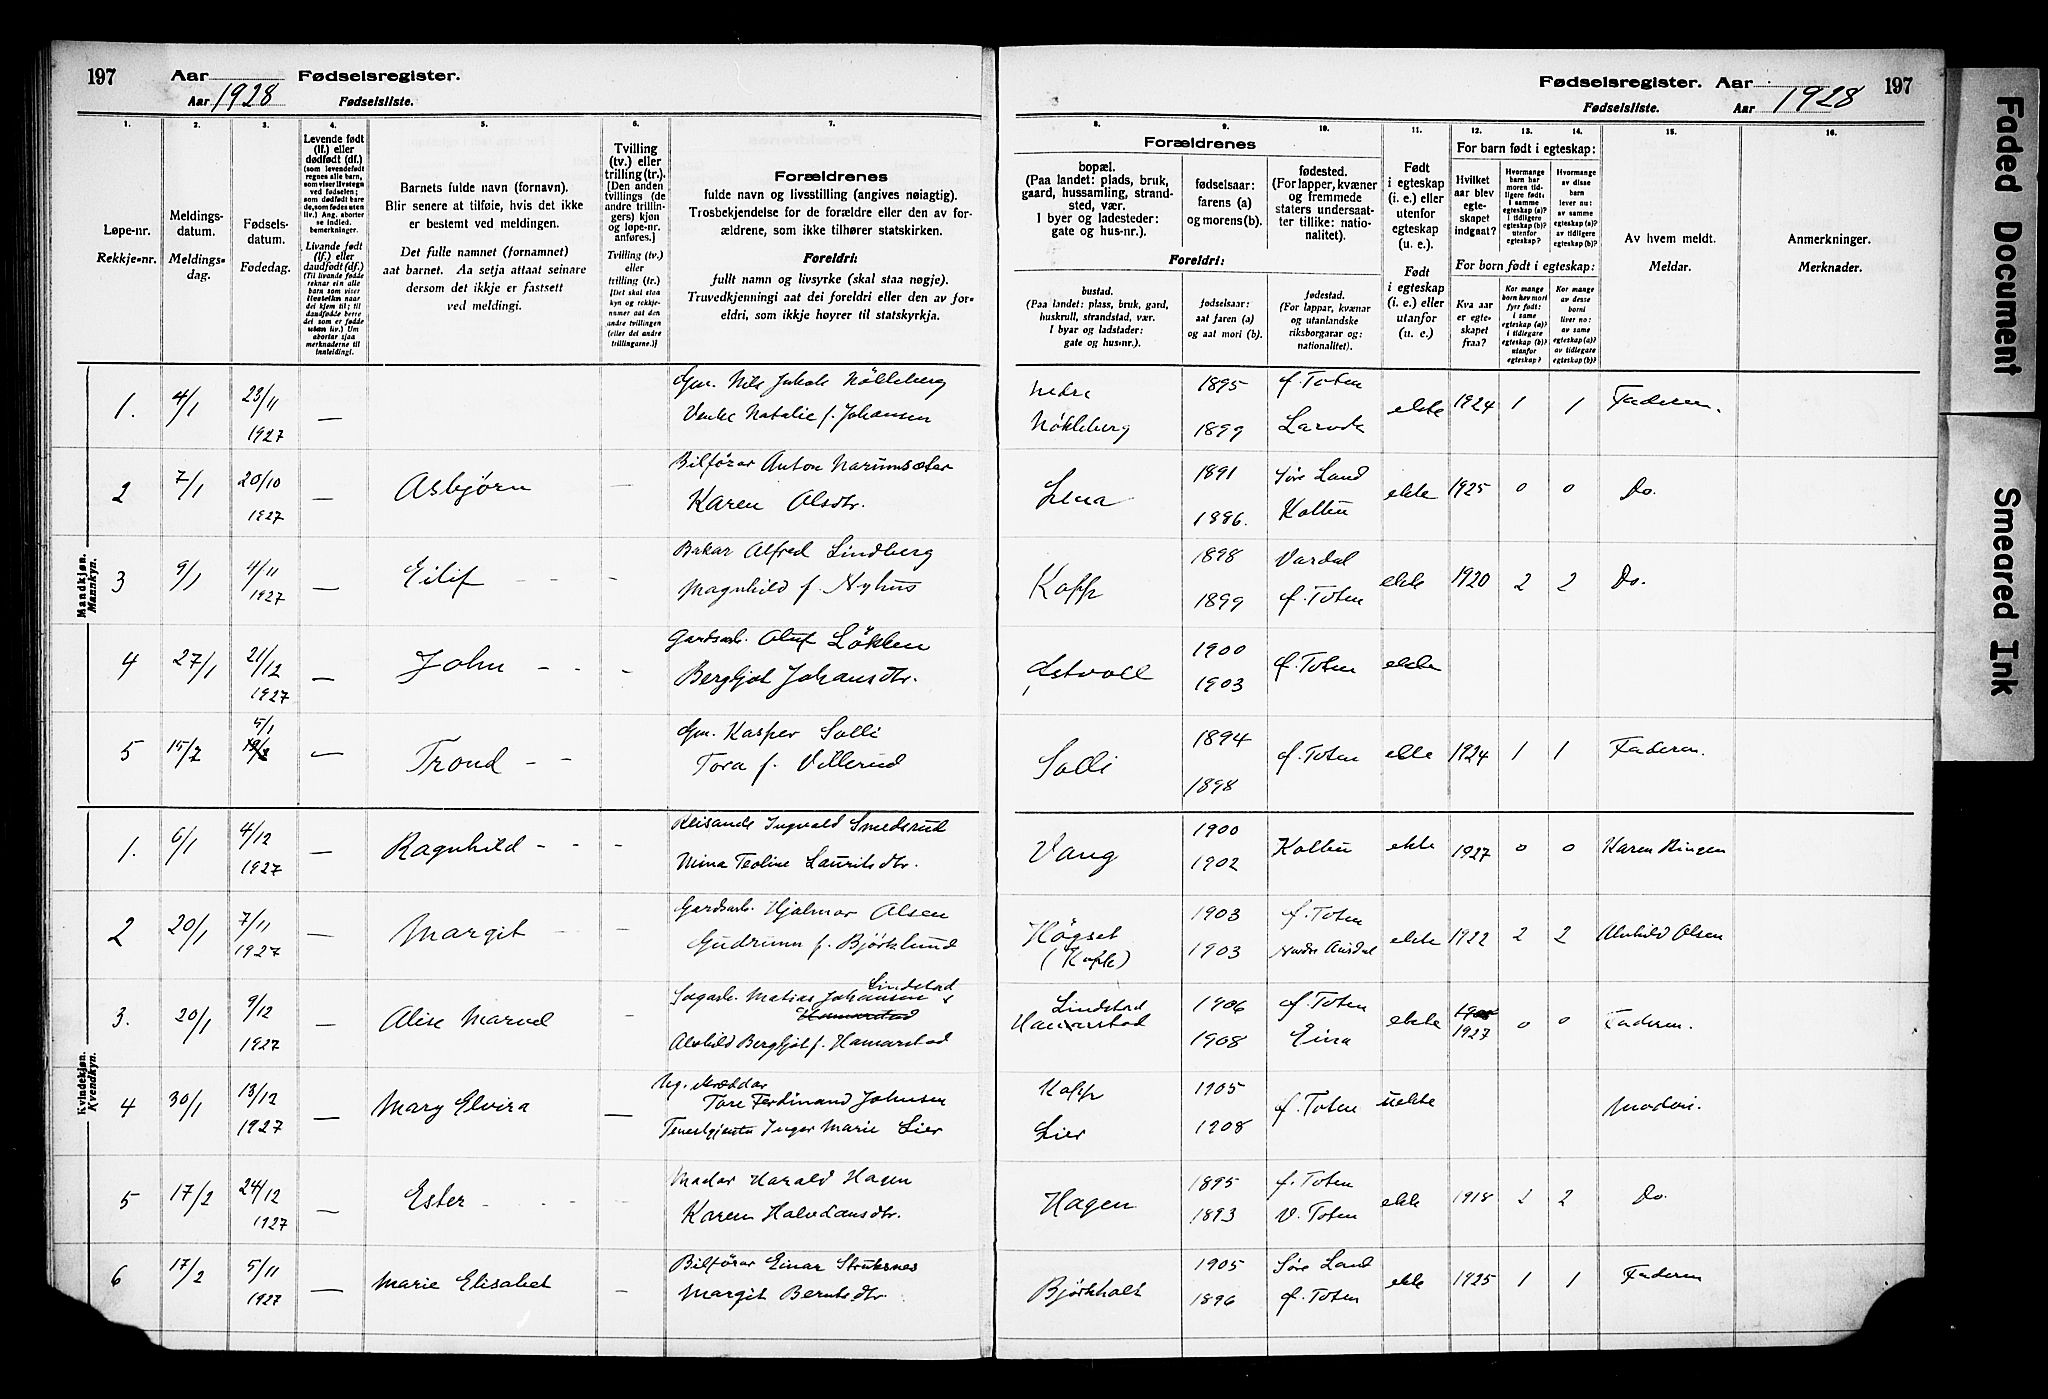 197 Aar Fødselsregister.
Aar 1928 Fødselsliste.
Fødselsregister. Aar 197
Fødselsliste. Aar 1928
1. 2. 3. 4. 5. 6. 7.
Løpe-nr.
Rekkje-nr.
Meldings-
datum.
Meldings-
dag.
Fødsels-
datum.
Fødedag.
Levende født
(lf.) eller
dødfødt (df.)
Livande født
(lf.) eller
daudfødt (df.)
Barnets fulde navn (fornavn).
Blir senere at tilføie, hvis det ikke
er bestemt ved meldingen.
Det fulle namnet (fornamnet)
aat barnet. Aa setja attaat seinare
dersom det ikkje er fastsett
ved meldingi.
Tvilling
(tv.) eller
trilling (tr.).
[Den anden
tvillings (de
andre trillin-
gers) kjøn
og løpe-nr.
anføres.]
Tvilling (tv.)
eller
trilling (tr.)
[Det skal staa
kyn og rekkje-
nummer aat den
andre tvillingen
(eller dei andre
trillingarne.)]
Forældrenes
fulde navn og livsstilling (angives nøiagtig).
Trosbekjendelse for de forældre eller den av for-
ældrene, som ikke tilhører statskirken.
Foreldri:
fullt namn og livsyrke (skal staa nøgje).
Truvedkjenningi aat dei foreldri eller den av for-
eldri, som ikkje høyrer til statskyrkja.
8. 9. 10. 11. 12. 13. 14. 15. 16.
Forældrenes
bopæl.
(Paa landet: plads, bruk,
gaard, hussamling, strand-
sted, vær.
I byer og ladesteder:
gate og hus-nr.).
fødselsaar:
farens (a)
og morens(b).
fødested.
(For lapper, kvæner
og fremmede
staters undersaat-
ter tillike: natio-
nalitet).
Foreldri:
bustad.
(Paa landet: plass, bruk, gard,
huskrull, strandstad, vær.
I byar og ladstader:
gate og hus-nr.).
fødselsaar:
aat faren (a)
og aat mori (b).
fødestad.
(For lappar, kvænar
og utanlandske
riksborgarar og:
nationalitet).
Født
i egteskap
(i. e.) eller
utenfor
egteskap
(u. e.).
Født
i egteskap
(i. e.) eller
utanfor
(u. e.).
For barn født i egteskap:
Hvilket
aar blev
egte-
skapet
indgaat?
For born født i egteskap:
Kva aar
er egte-
skapet
fraa?
Av hvem meldt.
Meldar.
Anmerkninger.
Merknader.
Mandkjøn.
Mannkyn.
1. 4/1 23/11 1927 — Gm. Nils Jakob Nökleberg
Venke Natalie f. Johansen
nedre Nökleberg 1895 1899 Ø. Toten Larvik ekte 1924 1 1 Faderen.
2 7/1 20/10 1927 — Asbjørn — Bilförar Anton Narumsæter
Karen Olsdtr.
Lena 1891 1896. Søre Land Kolbu ekte 1925 0 0 Do.
3 9/1 4/11 1927 — Eilif - - - Bakar Alfred Lindberg
Magnhild f. Nyhus
Kapp 1898 1899 Vardal Ø. Toten ekte 1920 2 2 Do.
4 27/1 21/12 1927 — John - - - Gardsarb. Oluf Lökken
Bergljot Johansdtr.
1900 1903 Ø. Toten ekte
5 15/2 5/1 — Trond - - Gm. Kasper Solli
Tora f. Villerud
Solli 1894 1898 Ø. Toten ekte 1924 1 1 Faderen.
Kvindekjøn.
Kvendkyn.
1. 6/1 4/12 1927 — Ragnhild - - - Reisande Ingvald Smedsrud
Mina Teoline Lauritsdtr.
Vang 1900 1902 Kolbu ekte 1927 0 0 Karen Ringen
2 20/1 7/11 1927 — Margit - - Gardsarb. Hjalmar Olsen
Gudrunn f. Björklund
Högset (Kapp) 1903 1903 Ø. Toten Nordre Aurdal ekte 1922 2 2 Alvhild Olsen
3. 20/1 9/12 1927 — Alise Marvel - Sagarb. Matias Johansen Lindstad
Hammerstad
Alvhild Bergljot f. Hamarstad
Lindstad
Hamarstad 1906 1908 Ø. Toten Eina ekte 1927 0 0 Faderen.
4 30/1 13/12 1927 — Mary Elvira — Ug. skræddar
Tore Ferdinand Johnsen
Tenestgjenta Inger Marie Lier
Kapp Lier 1905 1908 Ø. Toten uekte Moderen.
5 17/2 24/12 1927 — Ester - - - Harald Hagen
Karen Halvdansdtr.
Hagen 1895 1893 Ø. Toten V. Toten ekte 1918 2 2 Do.
6 17/2 5/11 1927 — Marie Elisabet - Bilförar Einar Struksnes
Margit Berntsdtr.
Björkholt 1905 1896 Søre Land Ø. Toten ekte 1925 1 1 Faderen
Faded Document
Smeared Ink